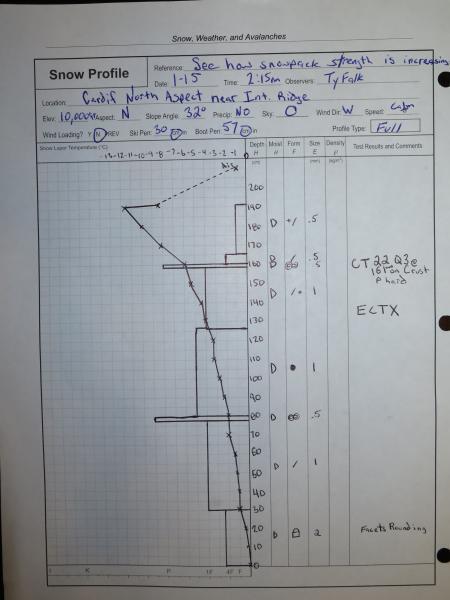 Snow, Weather, and Avalanches
Snow Profile
Reference: See how snowpack strength is increasing
Date: 1-15 Time: 2:15pm Observers: Ty Falk
Location: Cardiff North Aspect near Int. Ridge
Elev: 10,000ft Aspect: N Slope Angle: 32° Precip: NO Sky: O Wind Dir: W Speed: Calm
Wind Loading? Y N PREV Ski Pen: 30 cm in Boot Pen: 57 cm in Profile Type: Full
Snow Layer Temperature (°C) Depth Moist Form Size Density Test Results and Comments
-13-12-11-10-9-8-7-6-5-4-3-2-1 0 H θ F E ρ
Air (cm) (mm) (kg/m³)
200
190
180 D +/ .5
170
160 D / .5
CT 22 Q3 @
161 on Crust
P hard
150
140 D /• 1
ECTX
130
120
110
100 D • 1
90
80 D .5
70
60
50 D / 1
40
30
20 D 2 Facets Rounding
10
0
I K P 1F 4F F